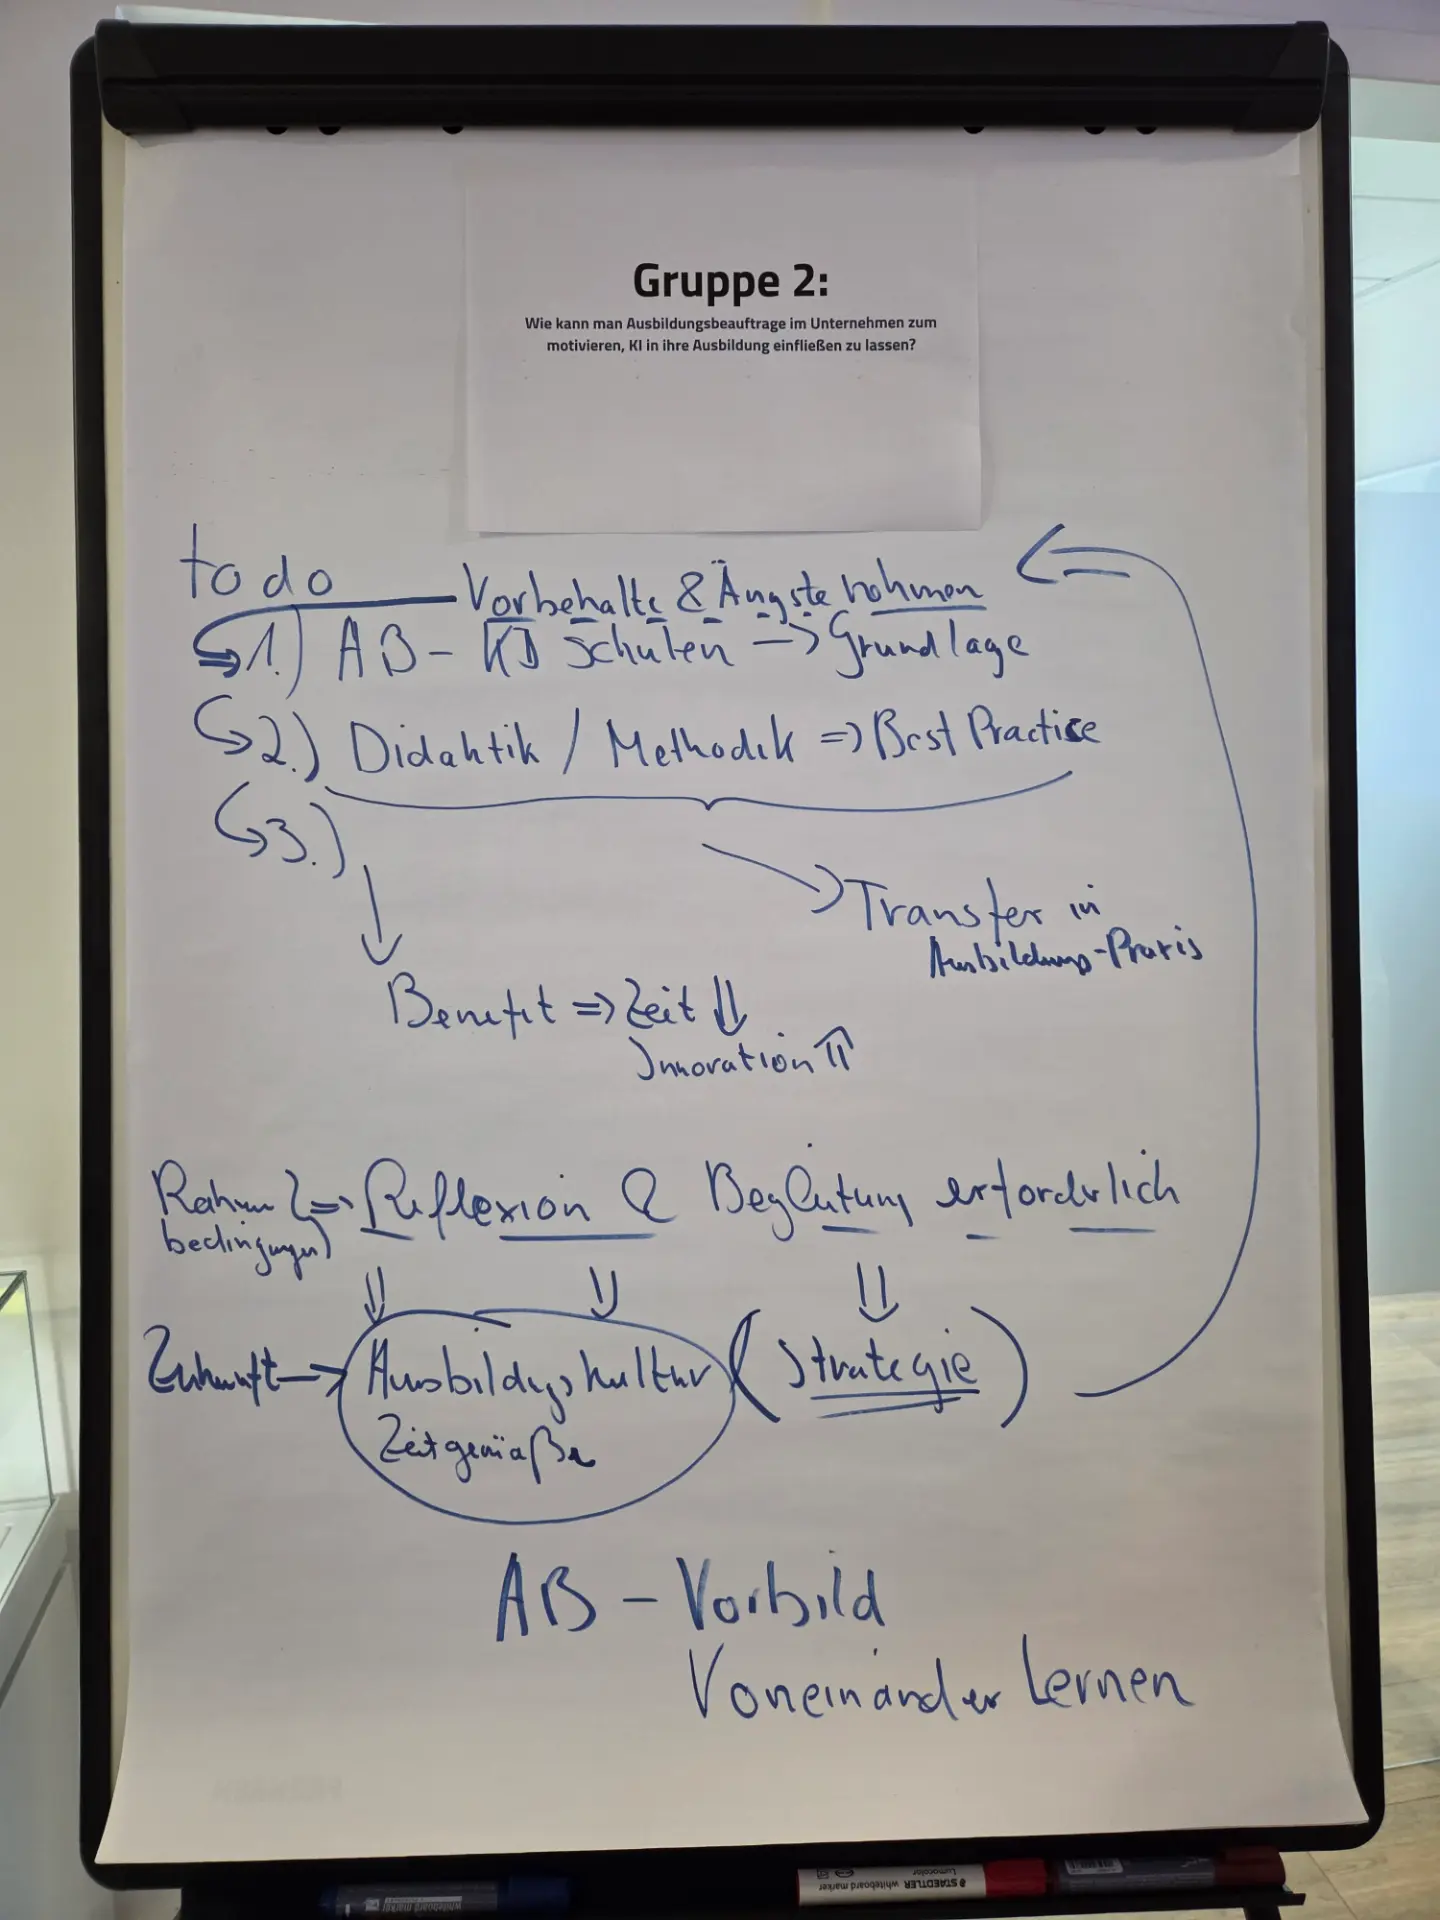 Gruppe 2:
Wie kann man Ausbildungsbeauftrage im Unternehmen zum
motivieren, KI in ihre Ausbildung einfließen zu lassen?
to do
Vorbehalte & Ängste nehmen
1.) AB - schulen -> Grundlage
2.) Didaktik / Methodik => Best Practice
3.)
Transfer in
Ausbildungs-Praxis
Benefit => Zeit ⇓
Innovation ⇑
Rahmen => Reflexion & Begleitung erforderlich
bedingungen
Zukunft -> Ausbildungskultur (Strategie)
Zeitgemäße
AB - Vorbild
Voneinander Lernen
STAEDTLER whiteboard marker
Lumocolor
whiteboard marker